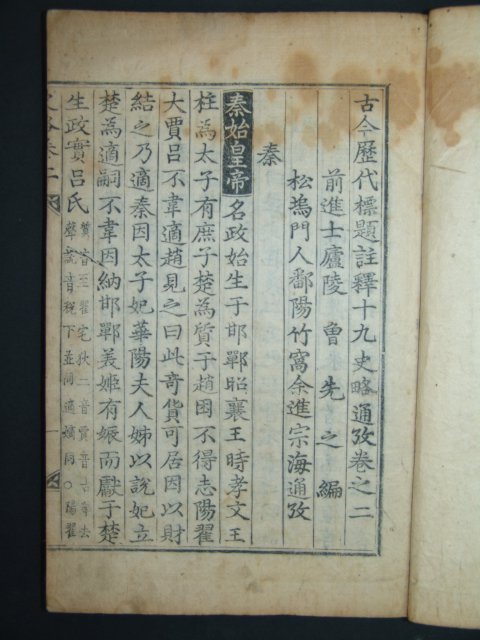 古今歷代標題註釋十九史略通攷卷之二
前進士廬陵 曾 先 之 編
松塢門人鄱陽竹窩余進宗海通攷
秦
秦始皇帝名政始生于邯鄲昭襄王時孝文王
柱爲太子有庶子楚爲質于趙因不得志陽翟
大賈呂不韋適趙見之曰此奇貨可居因以財
結之乃適秦因太子妃華陽夫人姊以說妃立
楚爲適嗣不韋因納邯鄲美姬有娠而獻于楚
生政實呂氏
質音至翟宅狄二音賈音古
聲說音稅下並同適嫡同○陽翟